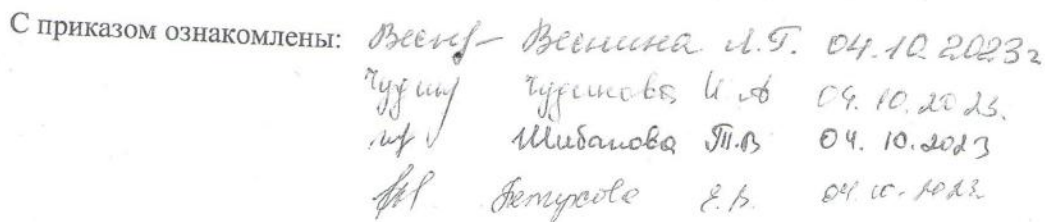 С приказом ознакомлены: Веснина Л.Т. 04.10.2023г
Чудинова И А 04.10.2023.
Шибанова Т.В 04.10.2023
Петухова Е.В. 04.10.2023